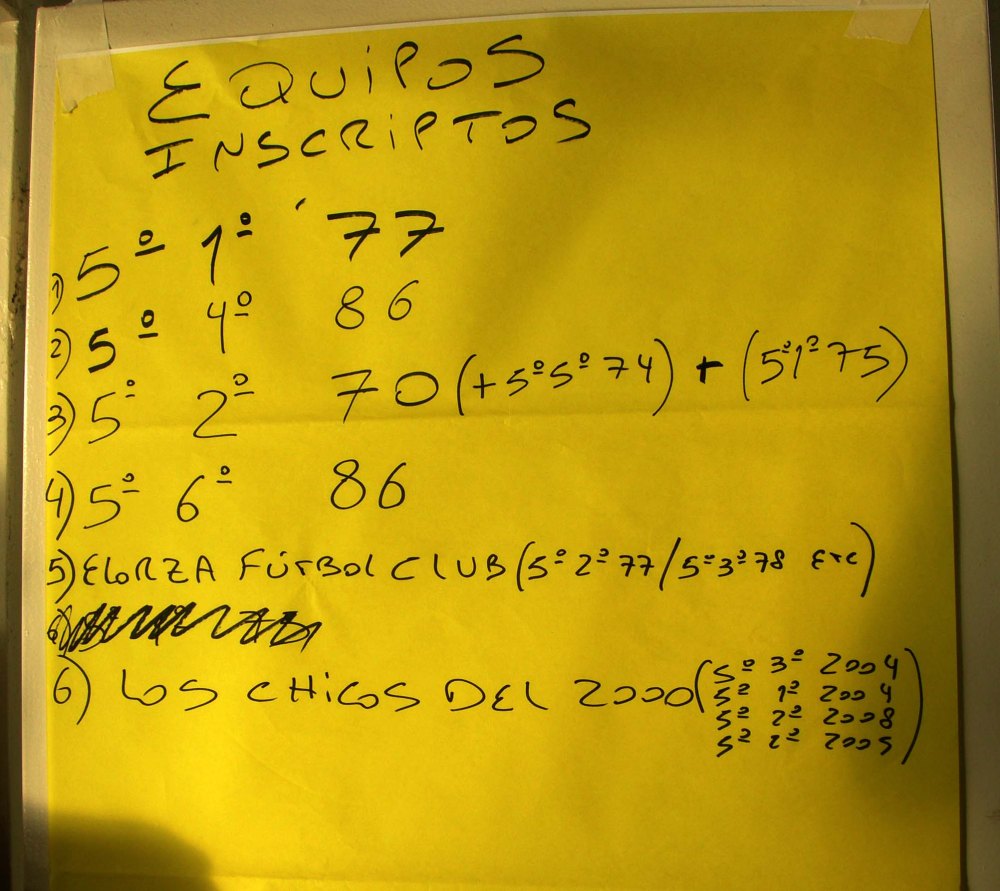 EQUIPOS
INSCRIPTOS
1) 5º 1º '77
2) 5º 4º 86
3) 5º 2º 70 (+5º5º 74) + (5º1º75)
4) 5º 6º 86
5) ELORZA FÚTBOL CLUB (5º2º77/5º3º78 ETC)
6)
6) LOS CHICOS DEL 2000 (5º 3º 2004
5º 1º 2004
5º 2º 2008
5º 2º 2005)